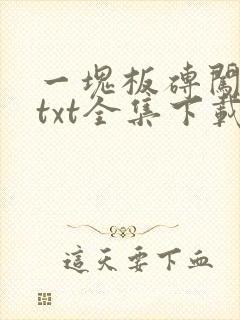 一塊板磚闖
txt全集下載
這天要下血